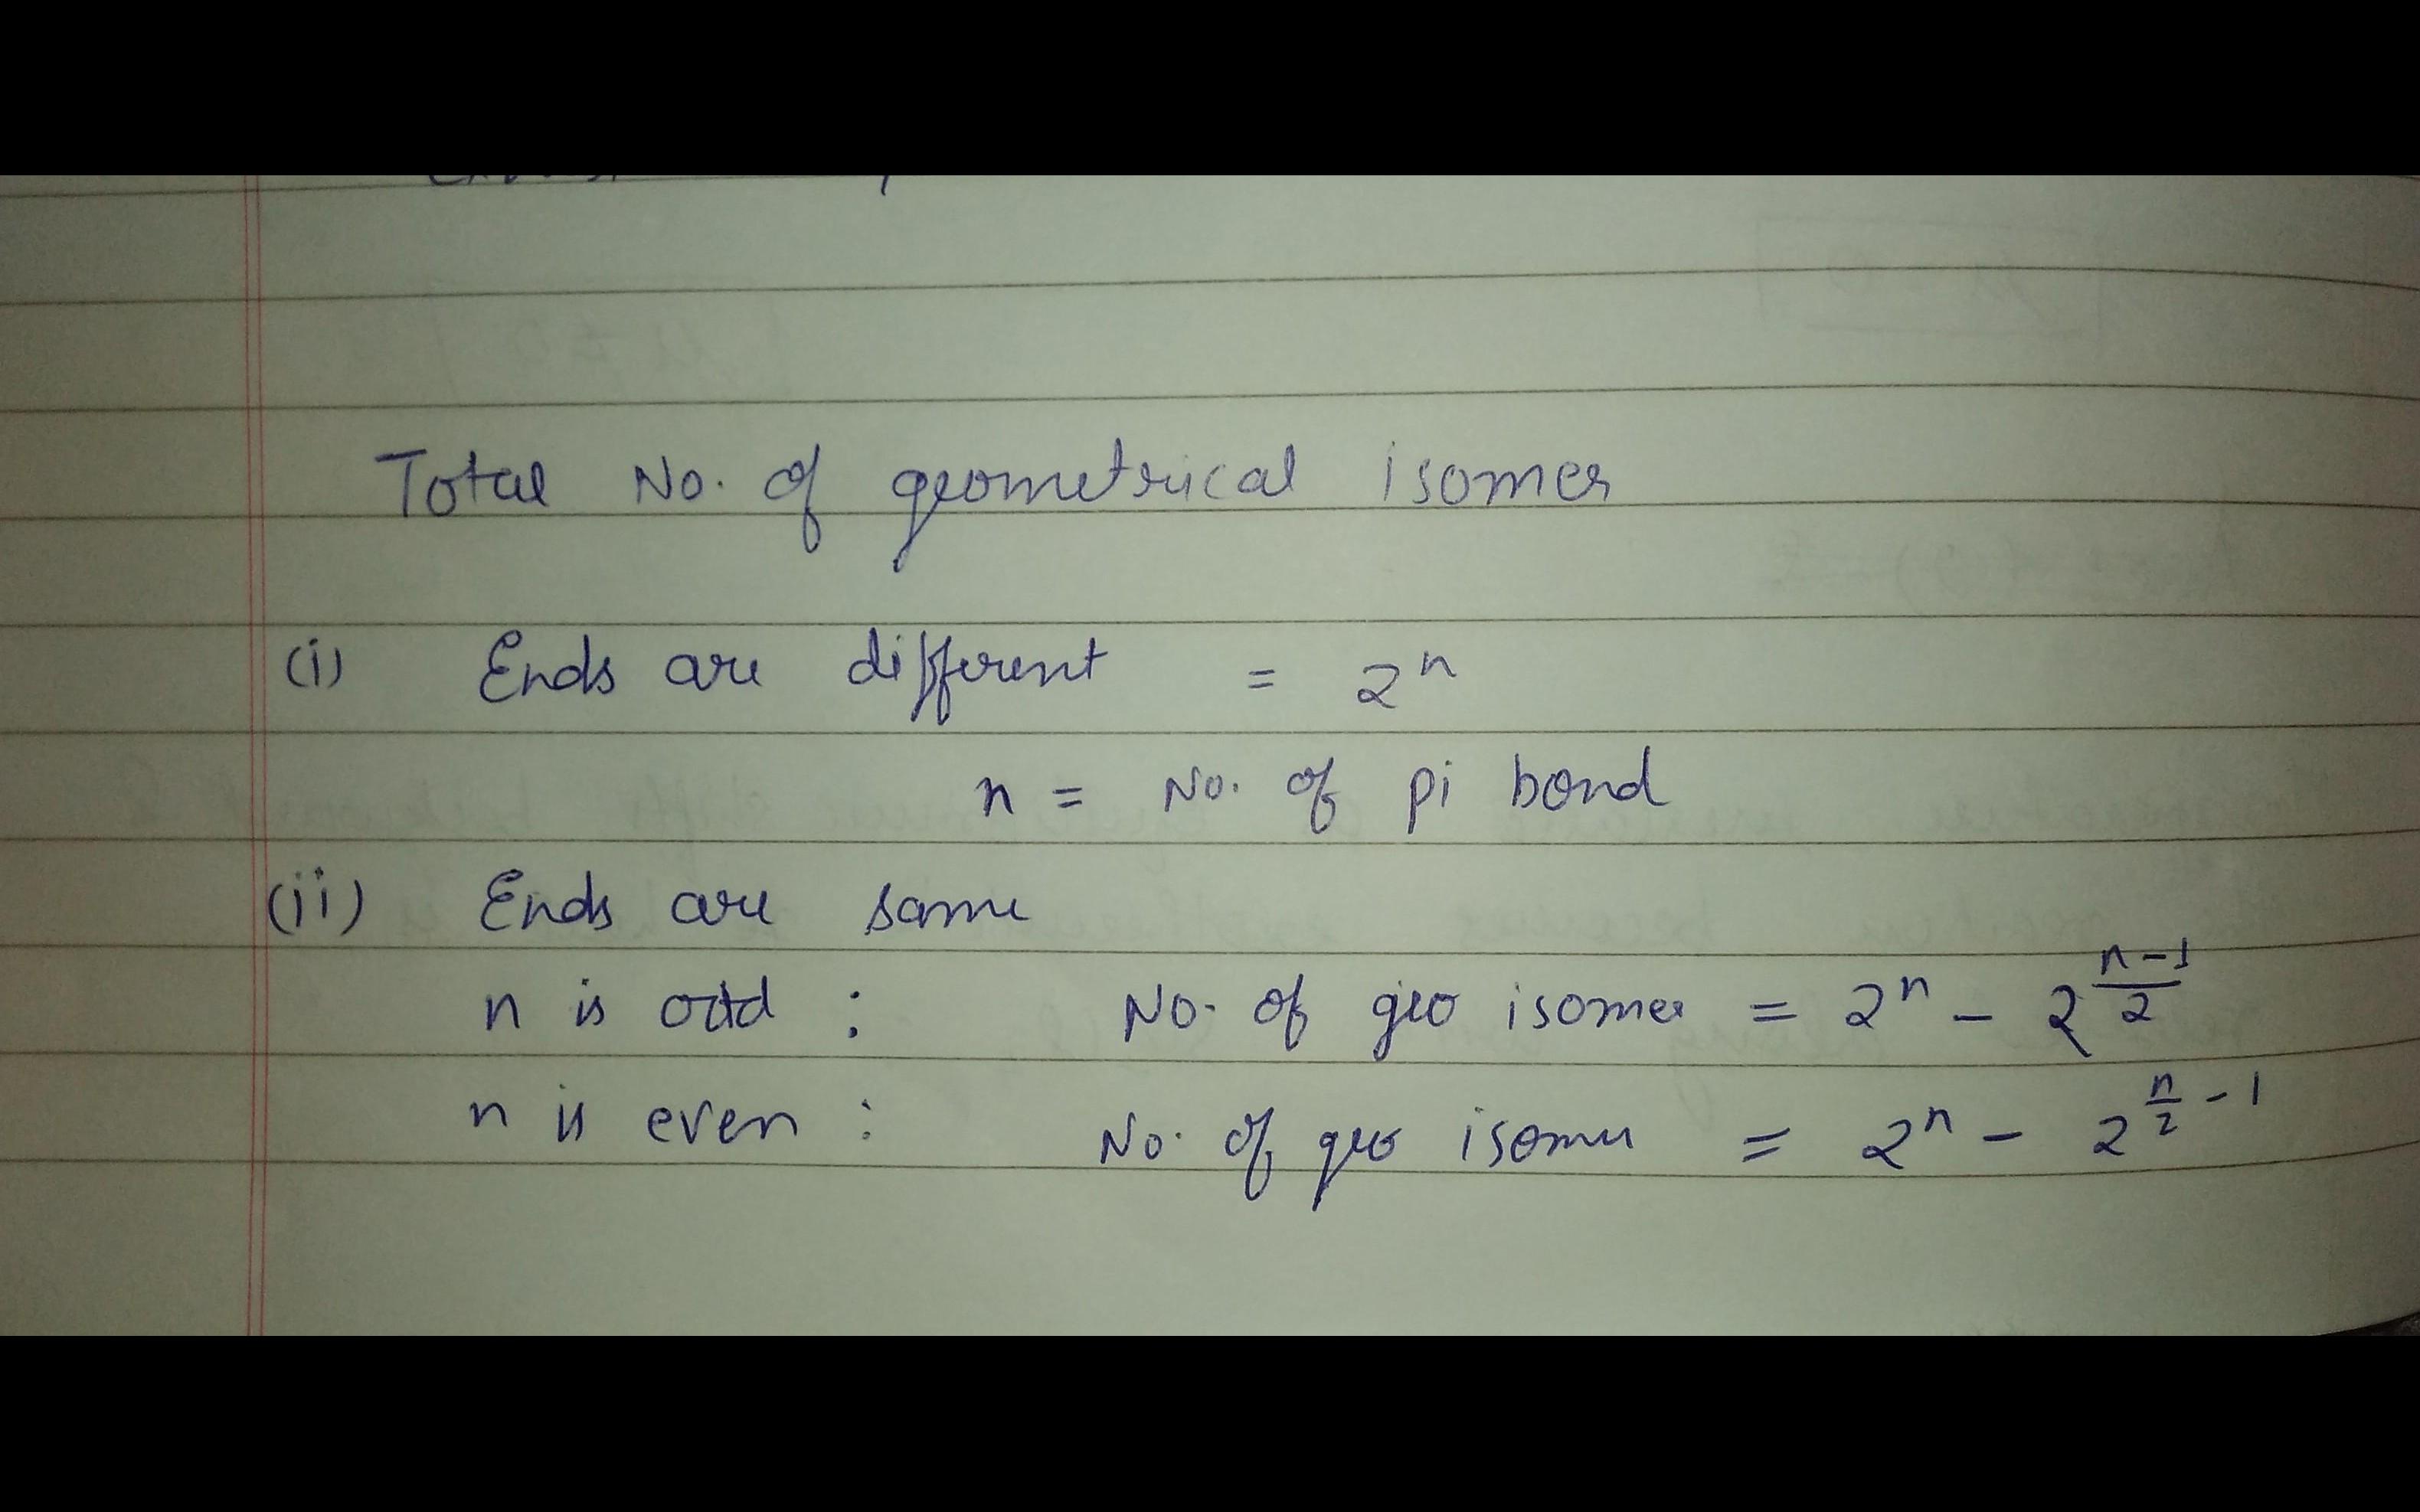 Total No. of geometrical isomer
(i) Ends are different = 2^n
n = No. of pi bond
(ii) Ends are same
n is odd : No. of geo isomer = 2^n - 2^((n-1)/2)
n is even : No. of geo isomer = 2^n - 2^(n/2 - 1)